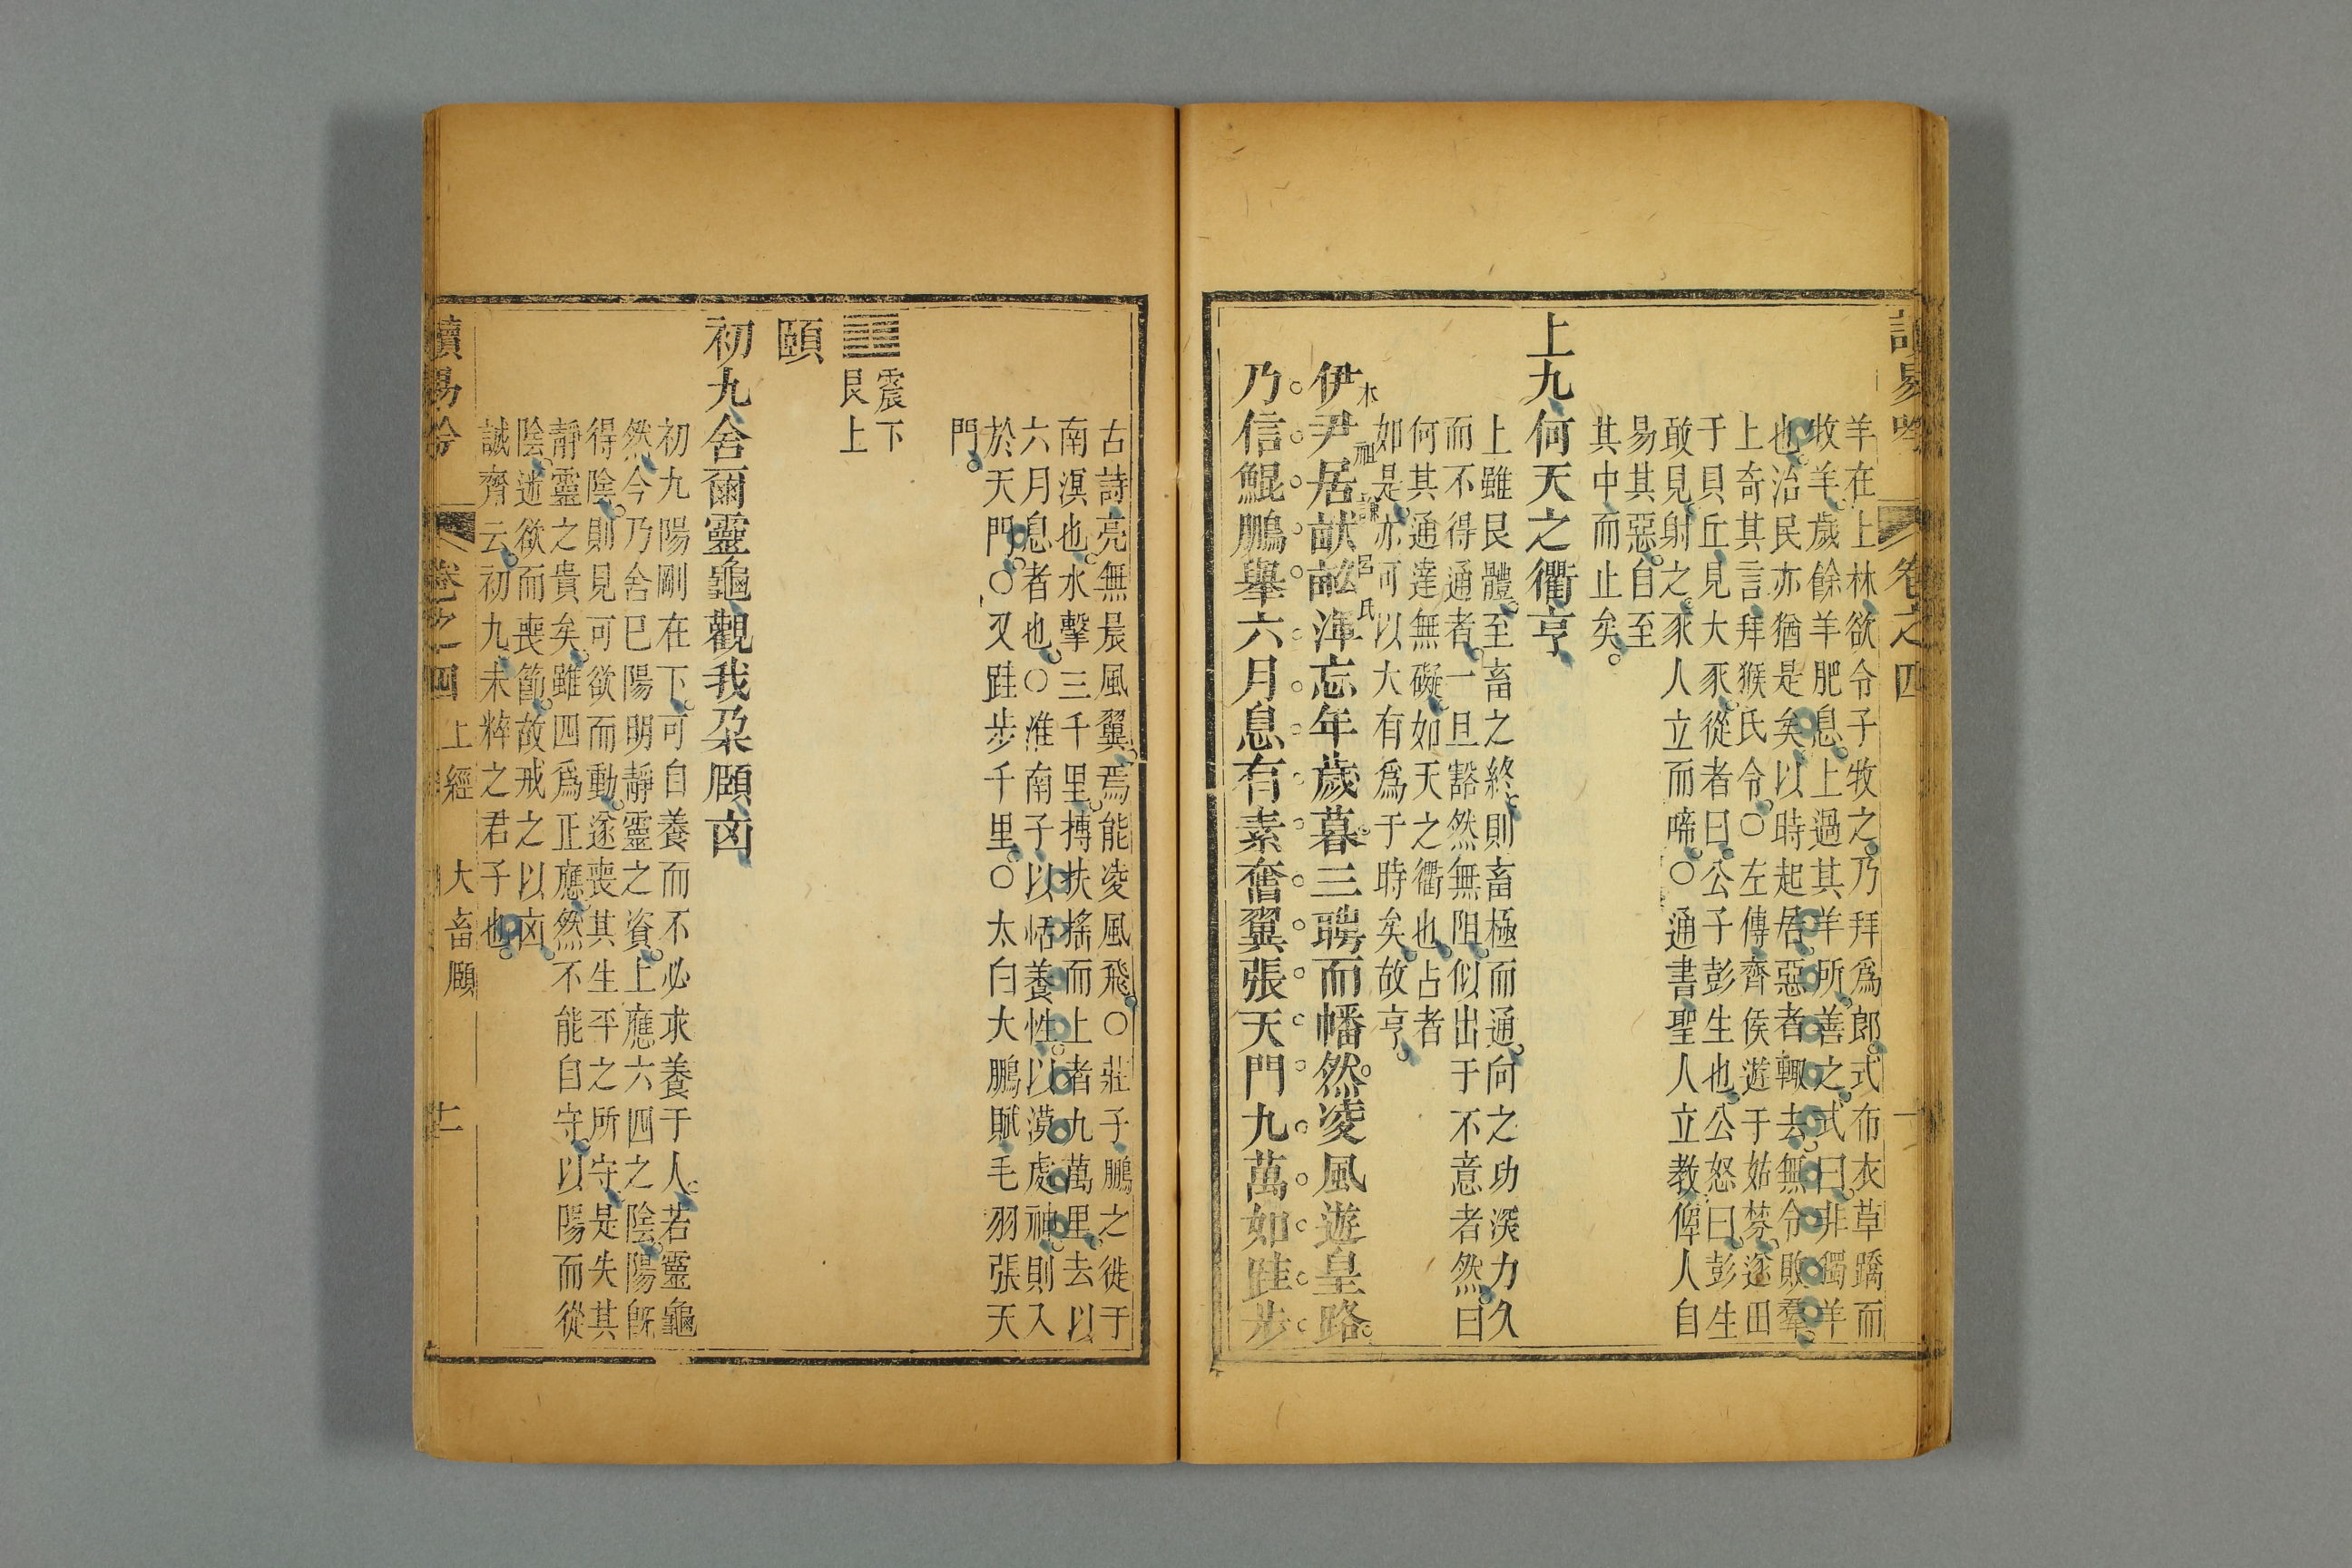 讀易吟 卷之四
羊在上林欲令子牧之乃拜爲郎式布衣草蹻而
牧羊歲餘羊肥息上過其羊所善之式曰非獨羊
也治民亦猶是矣以時起居惡者輒去無令敗羣
上奇其言拜猴氏令〇左傳齊侯遊于姑棼遂田
于貝丘見大豕從者曰公子彭生也公怒曰彭生
敢見射之豕人立而啼〇通書聖人立教俾人自
易其惡自至
其中而止矣
上九何天之衢亨
上雖艮體至畜之終則畜極而通向之功深力久
而不得通者一旦豁然無阻似出于不意者然曰
何其通達無礙如天之衢也占者
如是亦可以大有爲于時矣故亨
木 祖 謙 呂 氏
伊尹居畎畝渾忘年歲暮三聘而幡然凌風遊皇路
乃信鯤鵬舉六月息有素奮翼張天門九萬如跬步
古詩亮無晨風翼焉能凌風飛〇莊子鵬之徙于
南溟也水擊三千里摶扶搖而上者九萬里去以
六月息者也〇淮南子以恬養性以漠處神則入
於天門〇又跬步千里〇太白大鵬賦毛羽張天
門
震下
艮上
頤
初九舍爾靈龜觀我朵頤凶
初九陽剛在下可自養而不必求養于人若靈龜
然今乃舍已陽明靜靈之資上應六四之陰陽旣
得陰則見可欲而動遂喪其生平之所守是失其
靜靈之貴矣雖四爲正應然不能自守以陽而從
陰逐欲而喪節故戒之以凶
誠齊云初九未粹之君子也
讀易吟 卷之四 上經 大畜頤 十二